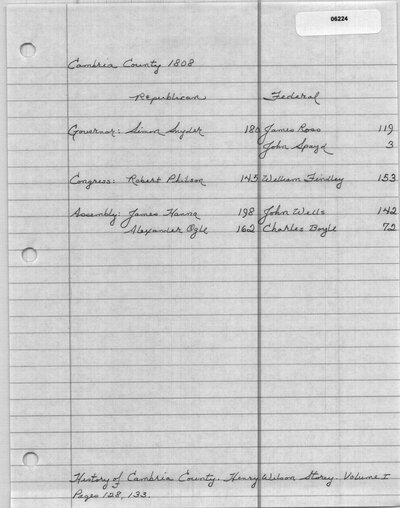 06224
Cambria County 1808
Republican Federal
Governor: Simon Snyder 180 James Ross 119
John Spayd 3
Congress: Robert Philson 145 William Findley 153
Assembly: James Hanna 198 John Wells 142
Alexander Ogle 162 Charles Boyle 72
History of Cambria County. Henry Wilson Storey. Volume I
Pages 128, 133.